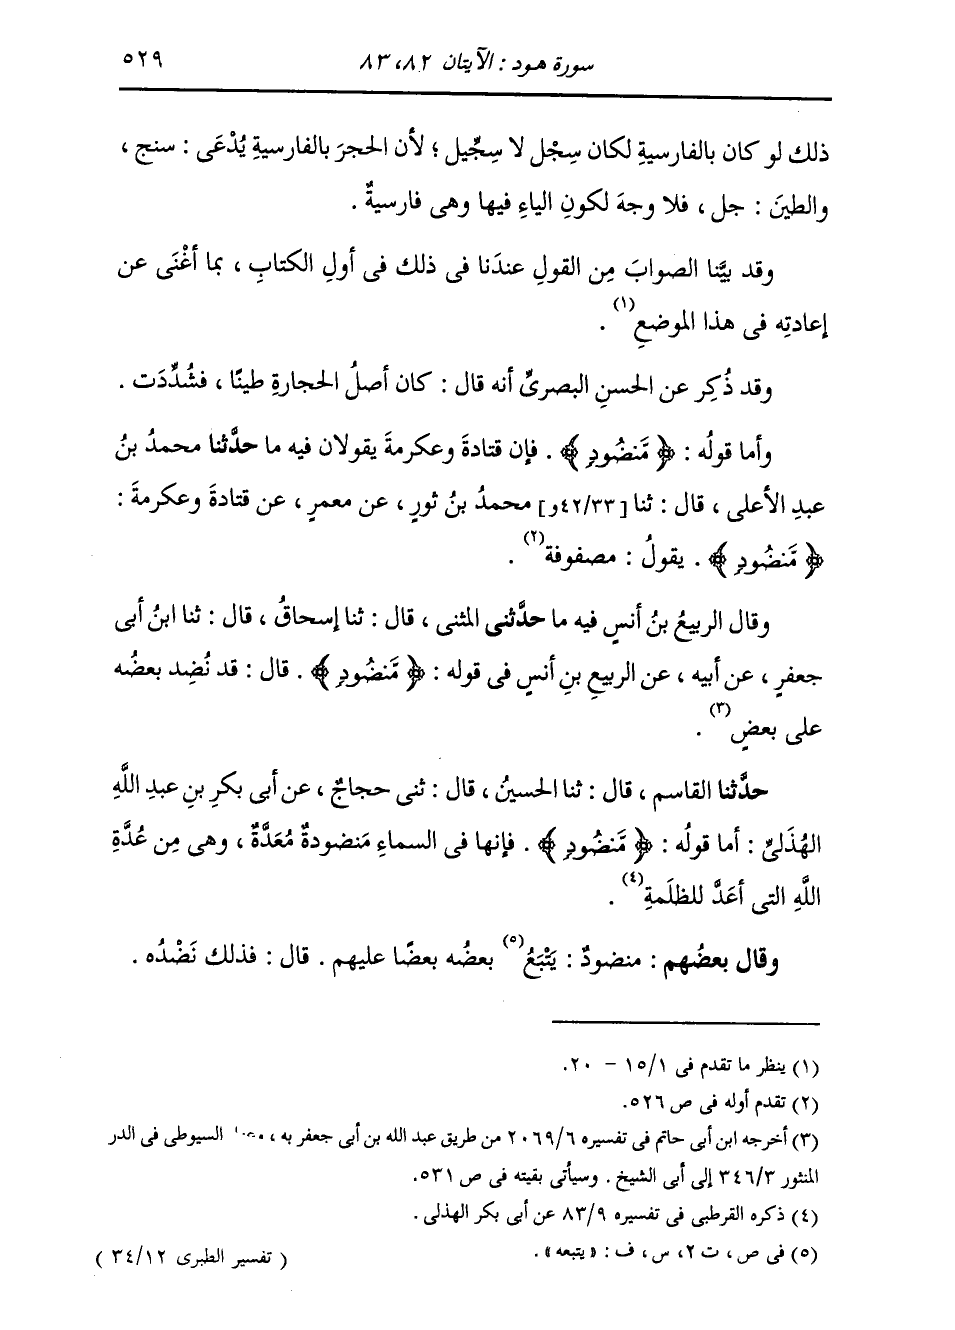 سورة هود : الآيتان ٨٢، ٨٣
٥٢٩
ذلك لو كان بالفارسيةِ لكان سِجْل لا سِجِّيل ؛ لأن الحجرَ بالفارسيةِ يُدْعَى : سنج ،
والطينَ : جل ، فلا وجهَ لكونِ الياءِ فيها وهى فارسيةٌ .
وقد بيَّنا الصوابَ مِن القولِ عندَنا فى ذلك فى أولِ الكتابِ ، بما أغْنَى عن
إعادتِه فى هذا الموضعِ(١) .
وقد ذُكِر عن الحسنِ البصرىِّ أنه قال : كان أصلُ الحجارةِ طينًا ، فشُدِّدَت .
وأما قولُه : ﴿ مَّنضُودٍ ﴾ . فإن قتادةَ وعكرمةَ يقولان فيه ما حدَّثنا محمدُ بنُ
عبدِ الأعلى ، قال : ثنا [٤٢/٣٣و] محمدُ بنُ ثورٍ ، عن معمرٍ ، عن قتادةَ وعكرمةَ :
﴿ مَّنضُودٍ ﴾ . يقولُ : مصفوفة(٢) .
وقال الربيعُ بنُ أنسٍ فيه ما حدَّثنى المثنى ، قال : ثنا إسحاقُ ، قال : ثنا ابنُ أبى
جعفرٍ ، عن أبيه ، عن الربيعِ بنِ أنسٍ فى قوله : ﴿ مَّنضُودٍ ﴾ . قال : قد نُضِد بعضُه
على بعضٍ(٣) .
حدَّثنا القاسم ، قال : ثنا الحسينُ ، قال : ثنى حجاجٌ ، عن أبى بكرِ بنِ عبدِ اللَّهِ
الهُذَلىِّ : أما قولُه : ﴿ مَّنضُودٍ ﴾ . فإنها فى السماءِ مَنضودةٌ مُعَدَّةٌ ، وهى مِن عُدَّةِ
اللَّهِ التى أعَدَّ للظلَمةِ(٤) .
وقال بعضُهم : منضودٌ : يَتْبَعُ(٥) بعضُه بعضًا عليهم . قال : فذلك نَضْدُه .
(١) ينظر ما تقدم فى ١٥/١ – ٢٠.
(٢) تقدم أوله فى ص ٥٢٦.
(٣) أخرجه ابن أبى حاتم فى تفسيره ٢٠٦٩/٦ من طريق عبد الله بن أبى جعفر به ، السيوطى فى الدر
المنثور ٣٤٦/٣ إلى أبى الشيخ . وسيأتى بقيته فى ص ٥٣١.
(٤) ذكره القرطبى فى تفسيره ٨٣/٩ عن أبى بكر الهذلى .
(٥) فى ص ، ت ٢، س ، ف : «يتبعه» .
( تفسير الطبرى ٣٤/١٢ )